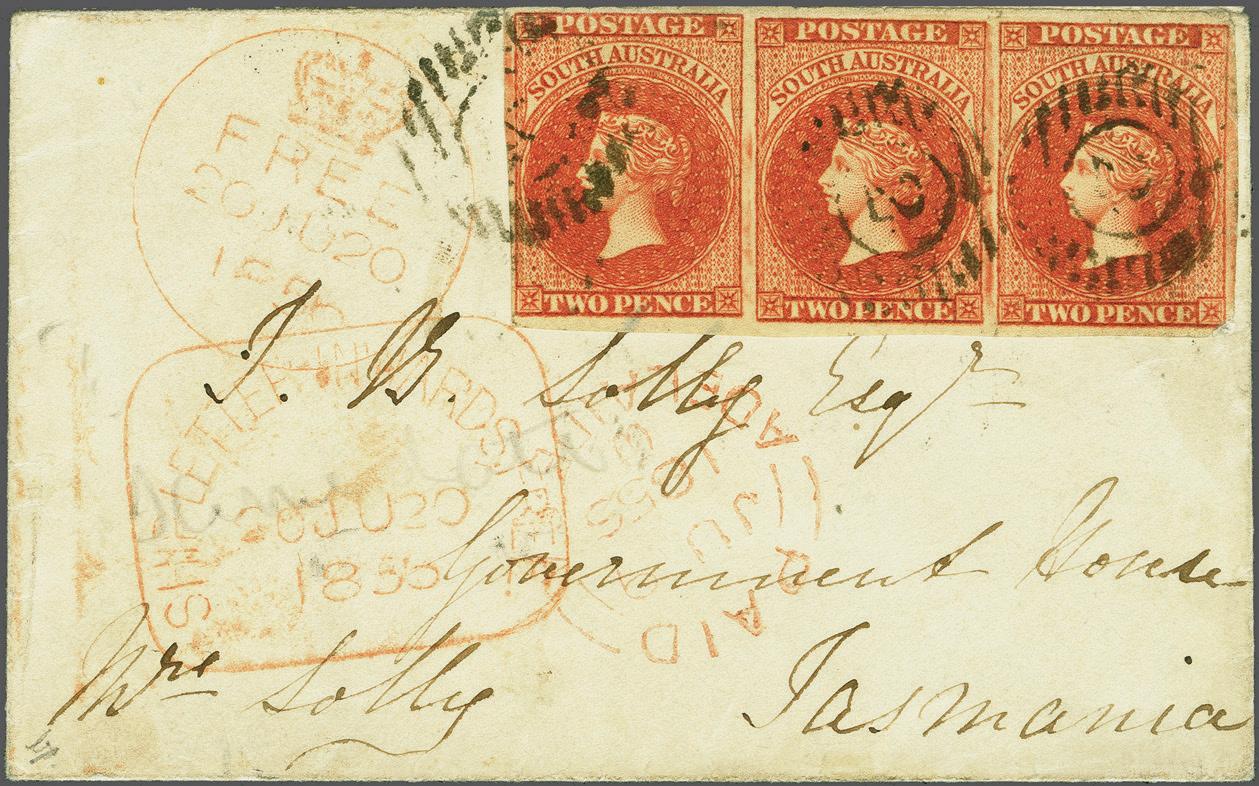 POSTAGE POSTAGE POSTAGE
SOUTH AUSTRALIA SOUTH AUSTRALIA SOUTH AUSTRALIA
TWO PENCE TWO PENCE TWO PENCE
FREE
20 JU 20
J. B. Solly Esqr
SHIP LETTER INWARDS FREE
20 JU 20
1855
ADELAIDE
1855
JU
PAID
Government House
Mrs Solly
Tasmania